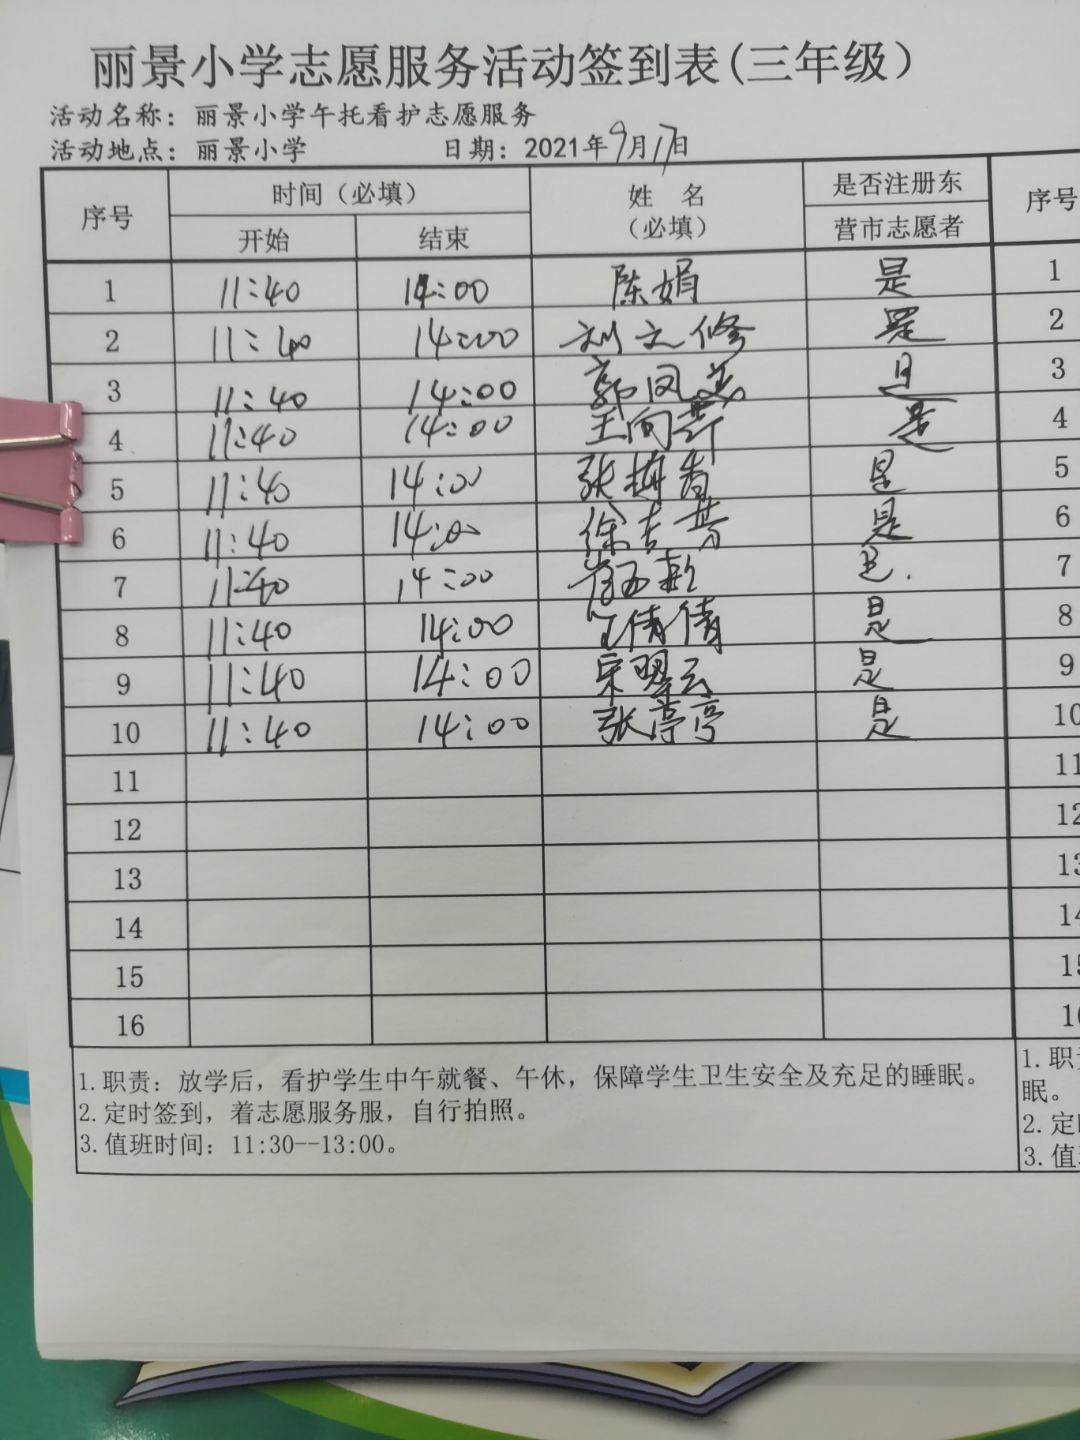 丽景小学志愿服务活动签到表(三年级）
活动名称：丽景小学午托看护志愿服务
活动地点：丽景小学 日期：2021年9月17日
序号 时间（必填） 姓 名 是否注册东 序号
开始 结束 （必填） 营市志愿者
1 11:40 14:00 陈娟 是 1
2 11:40 14:00 刘文修 是 2
3 11:40 14:00 郭凤英 是 3
4 11:40 14:00 王向 是 4
5 11:40 14:00 张梅 是 5
6 11:40 14:00 徐吉芬 是 6
7 11:40 14:00 是. 7
8 11:40 14:00 倩倩 是 8
9 11:40 14:00 宋翠云 是 9
10 11:40 14:00 张亭亭 是 10
11 11
12 12
13 13
14
15
16
1.职责：放学后，看护学生中午就餐、午休，保障学生卫生安全及充足的睡眠。 1.职
眠。
2.定时签到，着志愿服务服，自行拍照。 2.定
3.值班时间：11:30--13:00。 3.值